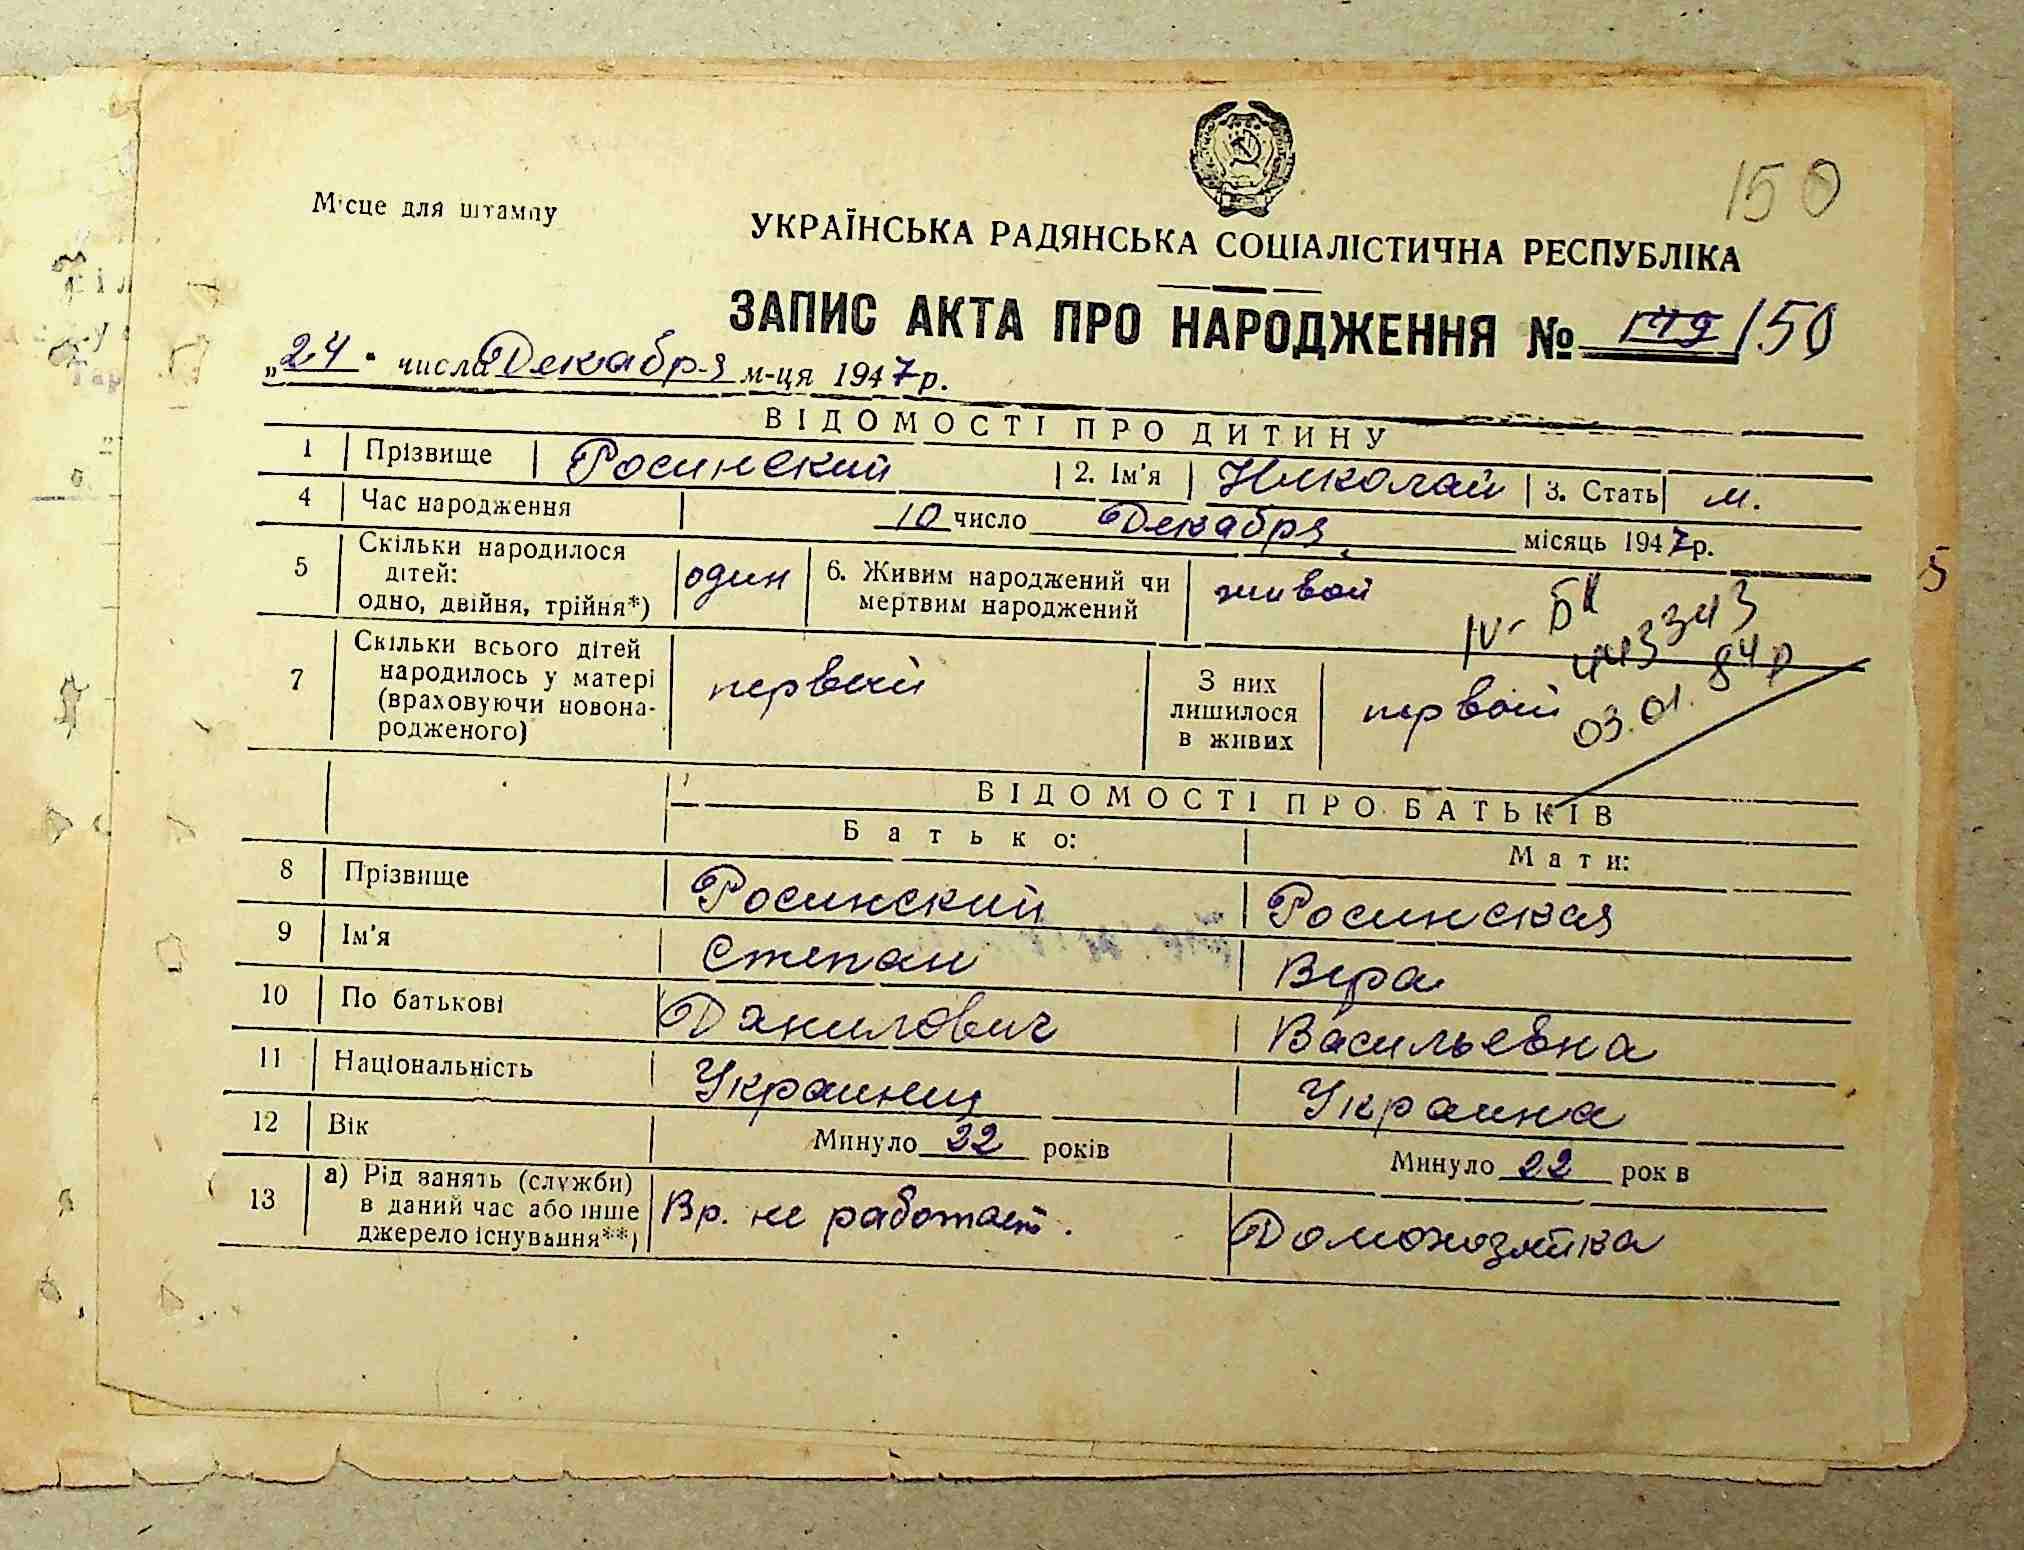 150
Місце для штампу
УКРАЇНСЬКА РАДЯНСЬКА СОЦІАЛІСТИЧНА РЕСПУБЛІКА
ЗАПИС АКТА ПРО НАРОДЖЕННЯ № 149/150
„24" числа Декабря м-ця 1947р.
ВІДОМОСТІ ПРО ДИТИНУ
1 Прізвище Росинский 2. Ім'я Николай 3. Стать м.
4 Час народження 10 число Декабря місяць 1947р.
5 Скільки народилося
дітей:
одно, двійня, трійня*)
один
6. Живим народжений чи
мертвим народжений
живой
5
IV-БК
443343
03.01.84р
7 Скільки всього дітей
народилось у матері
(враховуючи новона-
родженого)
первый
З них
лишилося
в живих
первой
ВІДОМОСТІ ПРО БАТЬКІВ
Батько: Мати:
8 Прізвище Росинский Росинская
9 Ім'я Степан Вера
10 По батькові Данилович Васильевна
11 Національність Украинец Украинка
12 Вік Минуло 22 років Минуло 22 рок в
13 а) Рід занять (служби)
в даний час або інше
джерело існування**)
Вр. не работает. Домохозяйка